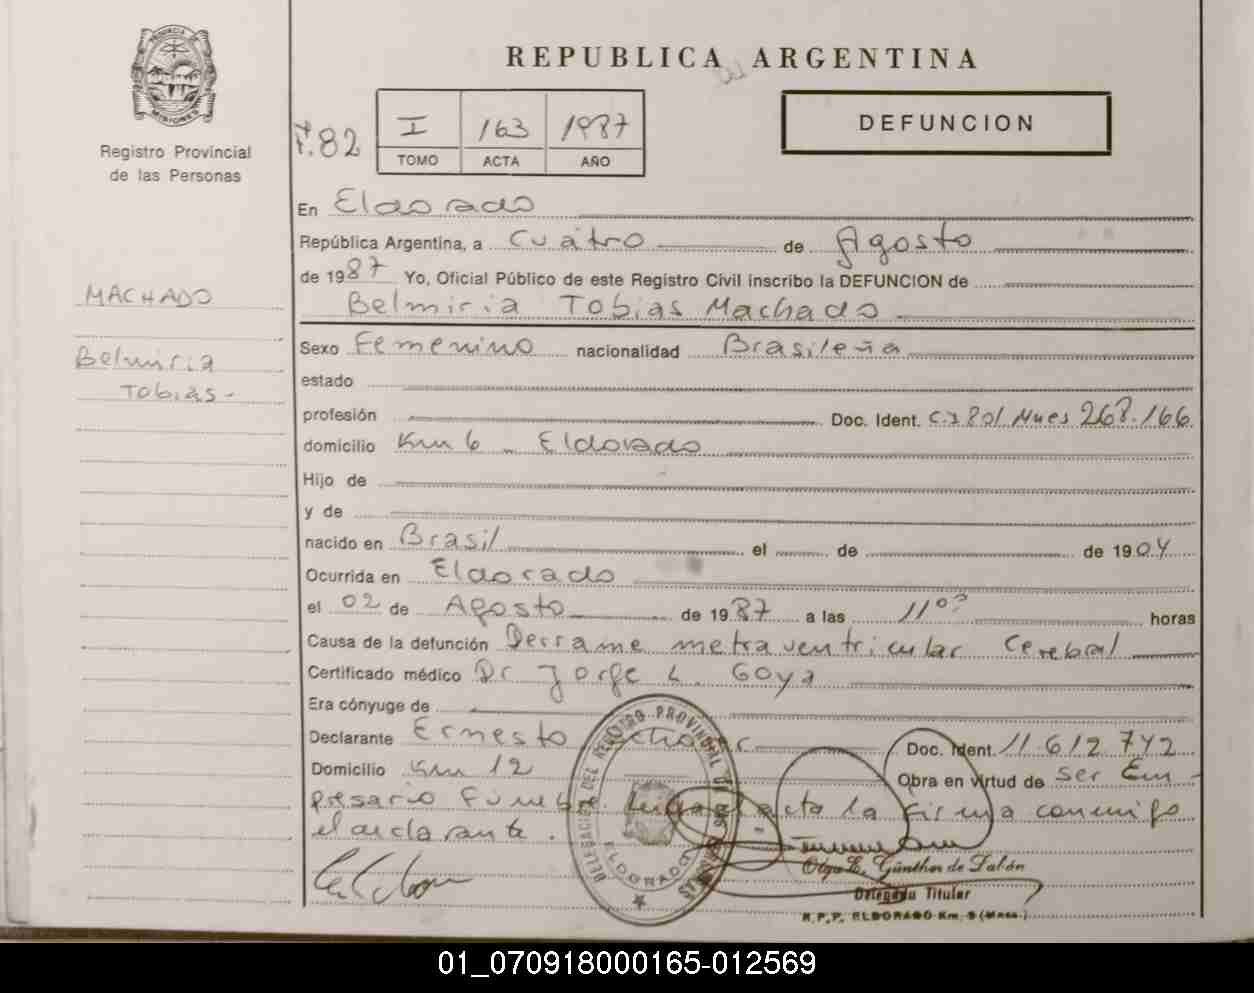 PROVINCIA DE
MISIONES
Registro Provincial
de las Personas
REPUBLICA ARGENTINA
F. 82
I 163 1987
TOMO ACTA AÑO
DEFUNCION
En Eldorado
República Argentina, a cuatro de Agosto
de 1987 Yo, Oficial Público de este Registro Civil inscribo la DEFUNCION de
Belmiria Tobias Machado
MACHADO
Belmiria
Tobias-
Sexo Femenino nacionalidad Brasileña
estado
profesión Doc. Ident. Mnes 268.166
domicilio Km 6 - Eldorado
Hijo de
y de
nacido en Brasil el de de 1904
Ocurrida en Eldorado
el 02 de Agosto de 1987 a las 11 horas
Causa de la defunción Derrame metraventricular Cerebral
Certificado médico Dr Jorge L. Goya
Era cónyuge de
Declarante Ernesto Doc. Ident. 11.612.742
Domicilio Km 12 Obra en virtud de ser Em-
presario Fúnebre acta la firma conmigo
el declarante.
DELEGACION DEL REGISTRO PROVINCIAL DE LAS PERSONAS
ELDORADO
Olga E. Günther de Labón
Delegada Titular
R.P.P. ELDORADO Km. 9 (Mnes.)
01_070918000165-012569